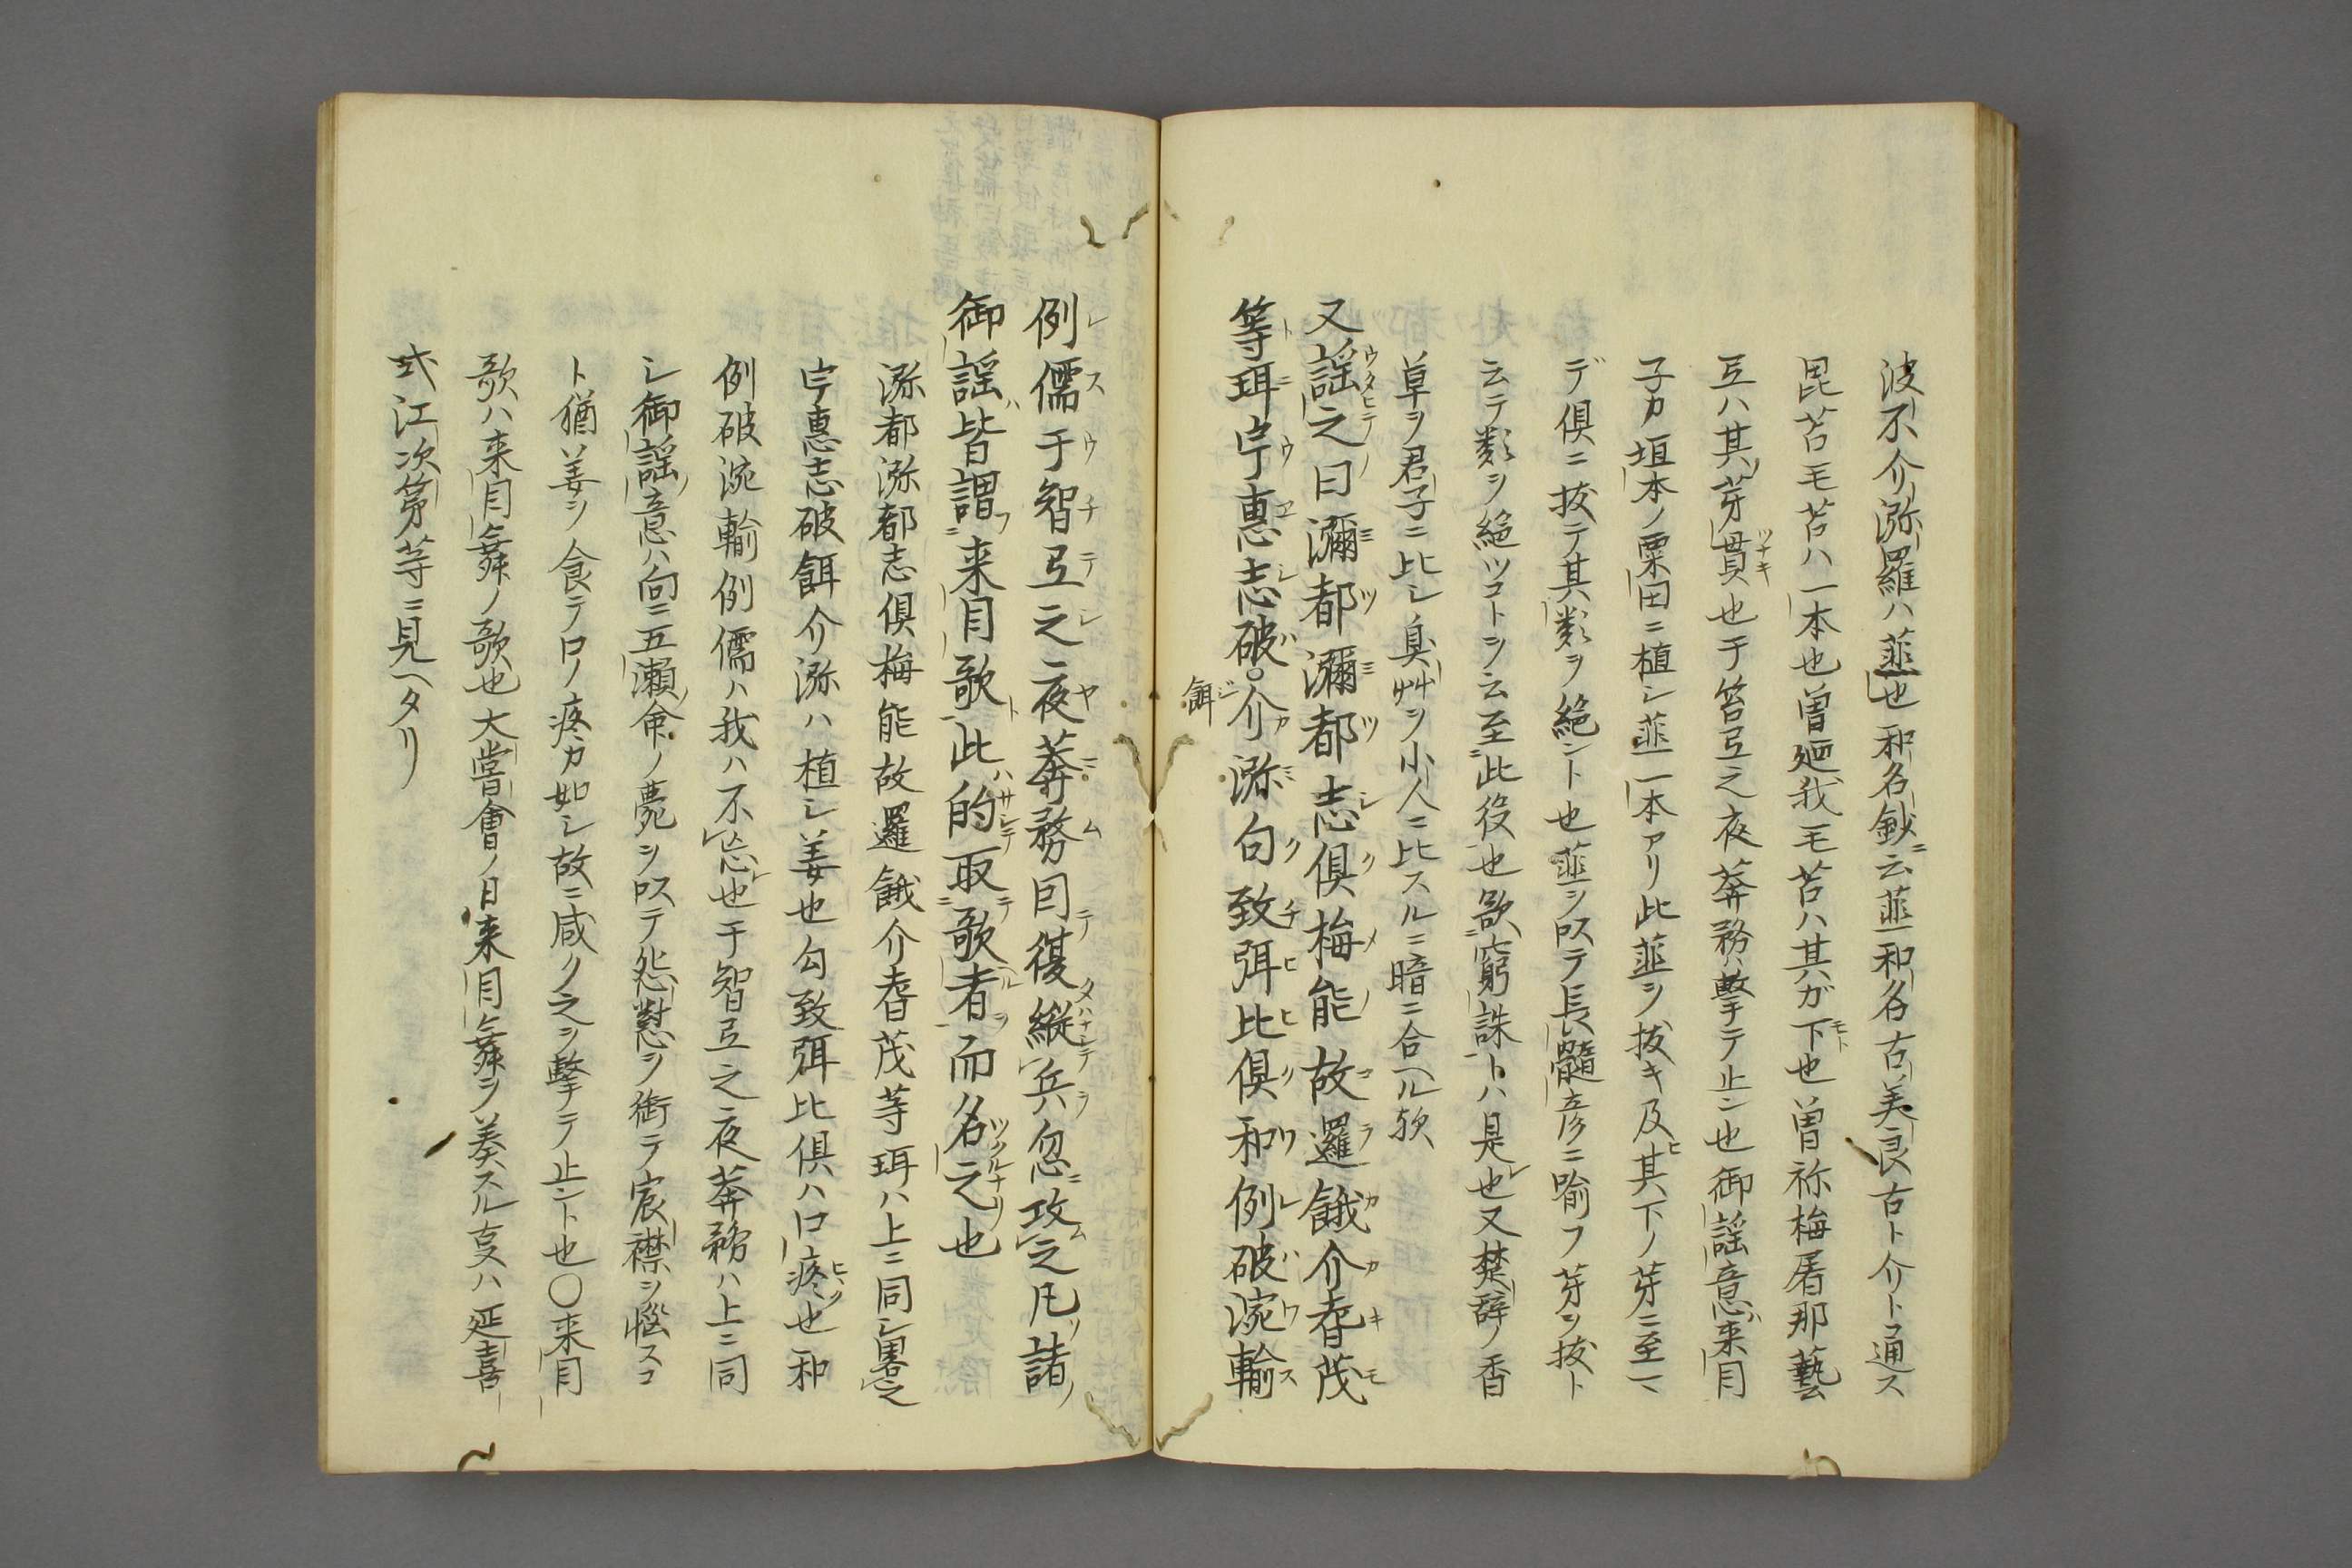 波不介濔羅ハ韮也和名鈔ニ云韮和名古美良古ト介ト通ス
毘苔モ苔ハ一本也曽廼我モ苔ハ其ガ下也曽祢梅屠那藝
弖ハ其ノ芽貫也于笞弖之夜莾務ハ擊テ止ン也御謡意ハ来目
子カ垣本ノ粟田ニ植シ韮一本アリ此韮ヲ抜キ及其下ノ芽ニ至マ
デ倶ニ抜テ其類ヲ絶ント也韮ヲ以テ長髓彦ニ喩フ芽ヲ抜ト
云テ類ヲ絶ツコトヲ云至此役也欲窮誅トハ是也又楚辞ノ香
草ヲ君子ニ比シ臭艸ヲ小人ニ比スルニ暗ニ合ヘル歟
又謡之曰瀰都瀰都志倶梅能故邏餓介耆茂
等珥宇惠志破餌介濔句致弭比倶和例破涴輸
例儒于智弖之夜莾務因復縱兵忽攻之凡諸
御謡皆謂来目歌此的取歌者而名之也
濔都濔都志倶梅能故邏餓介耆茂等珥ハ上ニ同シ畧之
宇惠志破餌介濔ハ植シ姜也勾致弭比倶ハ口疼也和
例破涴輸例儒ハ我ハ不忘也于智弖之夜莾務ハ上ニ同
シ御謡ノ意ハ向ニ五瀨ノ命ノ薨ヲ以テ怨懟ヲ銜テ宸襟ヲ悩スコ
ト猶姜ヲ食テロノ疼カ如シ故ニ咸ク之ヲ擊テ止ント也〇来目
歌ハ来目舞ノ歌也大嘗會ノ日来目舞ヲ奏スル叓ハ延喜
式江次第等ニ見ヘタリ